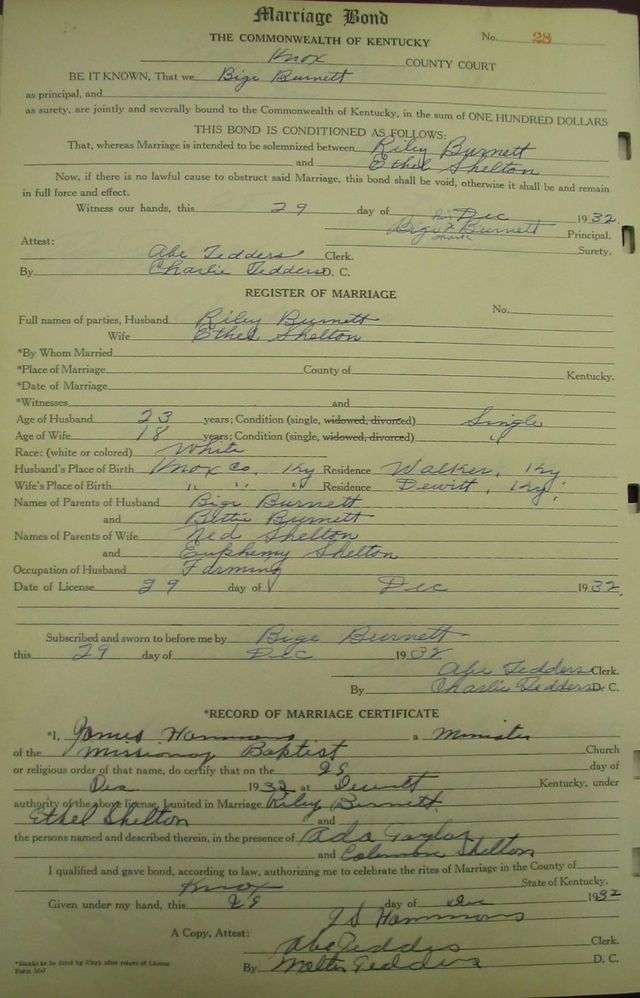 Marriage Bond
THE COMMONWEALTH OF KENTUCKY No. 28
Knox COUNTY COURT
BE IT KNOWN, That we Bige Burnett
as principal, and
as surety, are jointly and severally bound to the Commonwealth of Kentucky, in the sum of ONE HUNDRED DOLLARS
THIS BOND IS CONDITIONED AS FOLLOWS:
That, whereas Marriage is intended to be solemnized between Riley Burnett
and Ethel Shelton
Now, if there is no lawful cause to obstruct said Marriage, this bond shall be void, otherwise it shall be and remain
in full force and effect.
Witness our hands, this 29 day of Dec 1932.
his
Bige x Burnett Principal.
mark
Attest: Surety.
Abe Tedders Clerk.
By Charlie Tedders D. C.
REGISTER OF MARRIAGE
No.
Full names of parties, Husband Riley Burnett
Wife Ethel Shelton
*By Whom Married
*Place of Marriage County of Kentucky.
*Date of Marriage
*Witnesses and
Age of Husband 23 years; Condition (single, widowed, divorced) Single
Age of Wife 18 years; Condition (single, widowed, divorced) "
Race: (white or colored) White
Husband's Place of Birth Knox Co. Ky Residence Walker, Ky
Wife's Place of Birth " " " Residence Dewitt, Ky.
Names of Parents of Husband Bige Burnett
and Bettie Burnett
Names of Parents of Wife Ned Shelton
and Euphemy Shelton
Occupation of Husband Farming
Date of License 29 day of Dec 1932.
Subscribed and sworn to before me by Bige Burnett
this 29 day of Dec 1932
Abe Tedders Clerk.
By Charlie Tedders D. C.
*RECORD OF MARRIAGE CERTIFICATE
*I, James Hammons a Minister
of the Missionay Baptist Church
or religious order of that name, do certify that on the 29 day of
Dec 1932 at Dewitt Kentucky, under
authority of the above license, I united in Marriage Riley Burnett
Ethel Shelton and
the persons named and described therein, in the presence of Ada Taylor
and Coleman Shelton
I qualified and gave bond, according to law, authorizing me to celebrate the rites of Marriage in the County of
Knox State of Kentucky.
Given under my hand, this 29 day of Dec 1932
J S Hammons
A Copy, Attest: Abe Tedders Clerk.
By Walter Tedders D. C.
*Blanks to be filled by Clerk after return of License